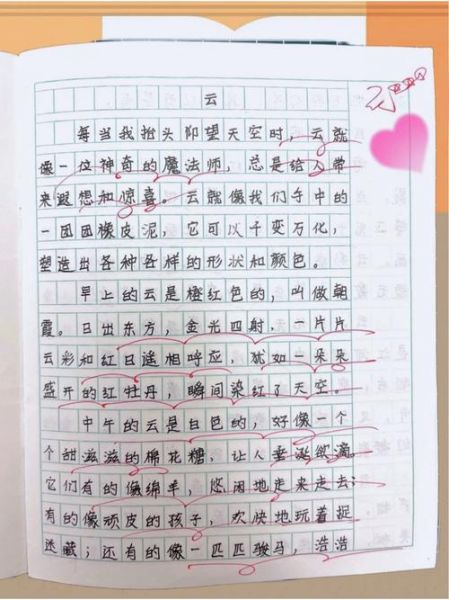 云
每当我抬头仰望天空时，云就
像一位神奇的魔法师，总是给人带
来遐想和惊喜。云就像我们手中的
一团团橡皮泥，它可以千变万化，
塑造出各种各样的形状和颜色。
早上的云是橙红色的，叫做朝
霞。日出东方，金光四射，一片片
云彩和红日遥相呼应，犹如一朵朵
盛开的红牡丹，瞬间染红了天空。
中午的云是白色的，好像一个
个甜滋滋的棉花糖，让人垂涎欲滴。
它们有的像绵羊，悠闲地走来走去；
有的像顽皮的孩子，欢快地玩着捉
迷藏；还有的像一匹匹骏马，浩浩